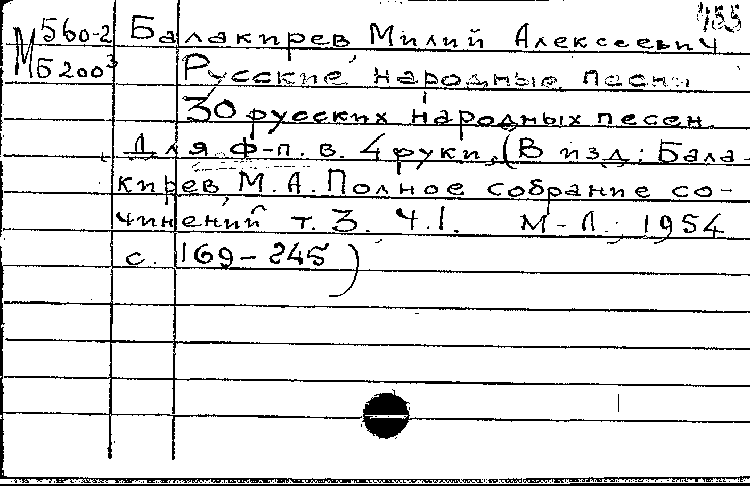 455
М 560-2 Балакирев, Милий Алексеевич
Б 200³ Русские народные песни
30 русских народных песен
Для ф-п. в. 4 руки. (В изд: Бала-
кирев, М. А. Полное собрание со-
чинений т. 3. ч. 1. М-Л.; 1954
с. 169-245)